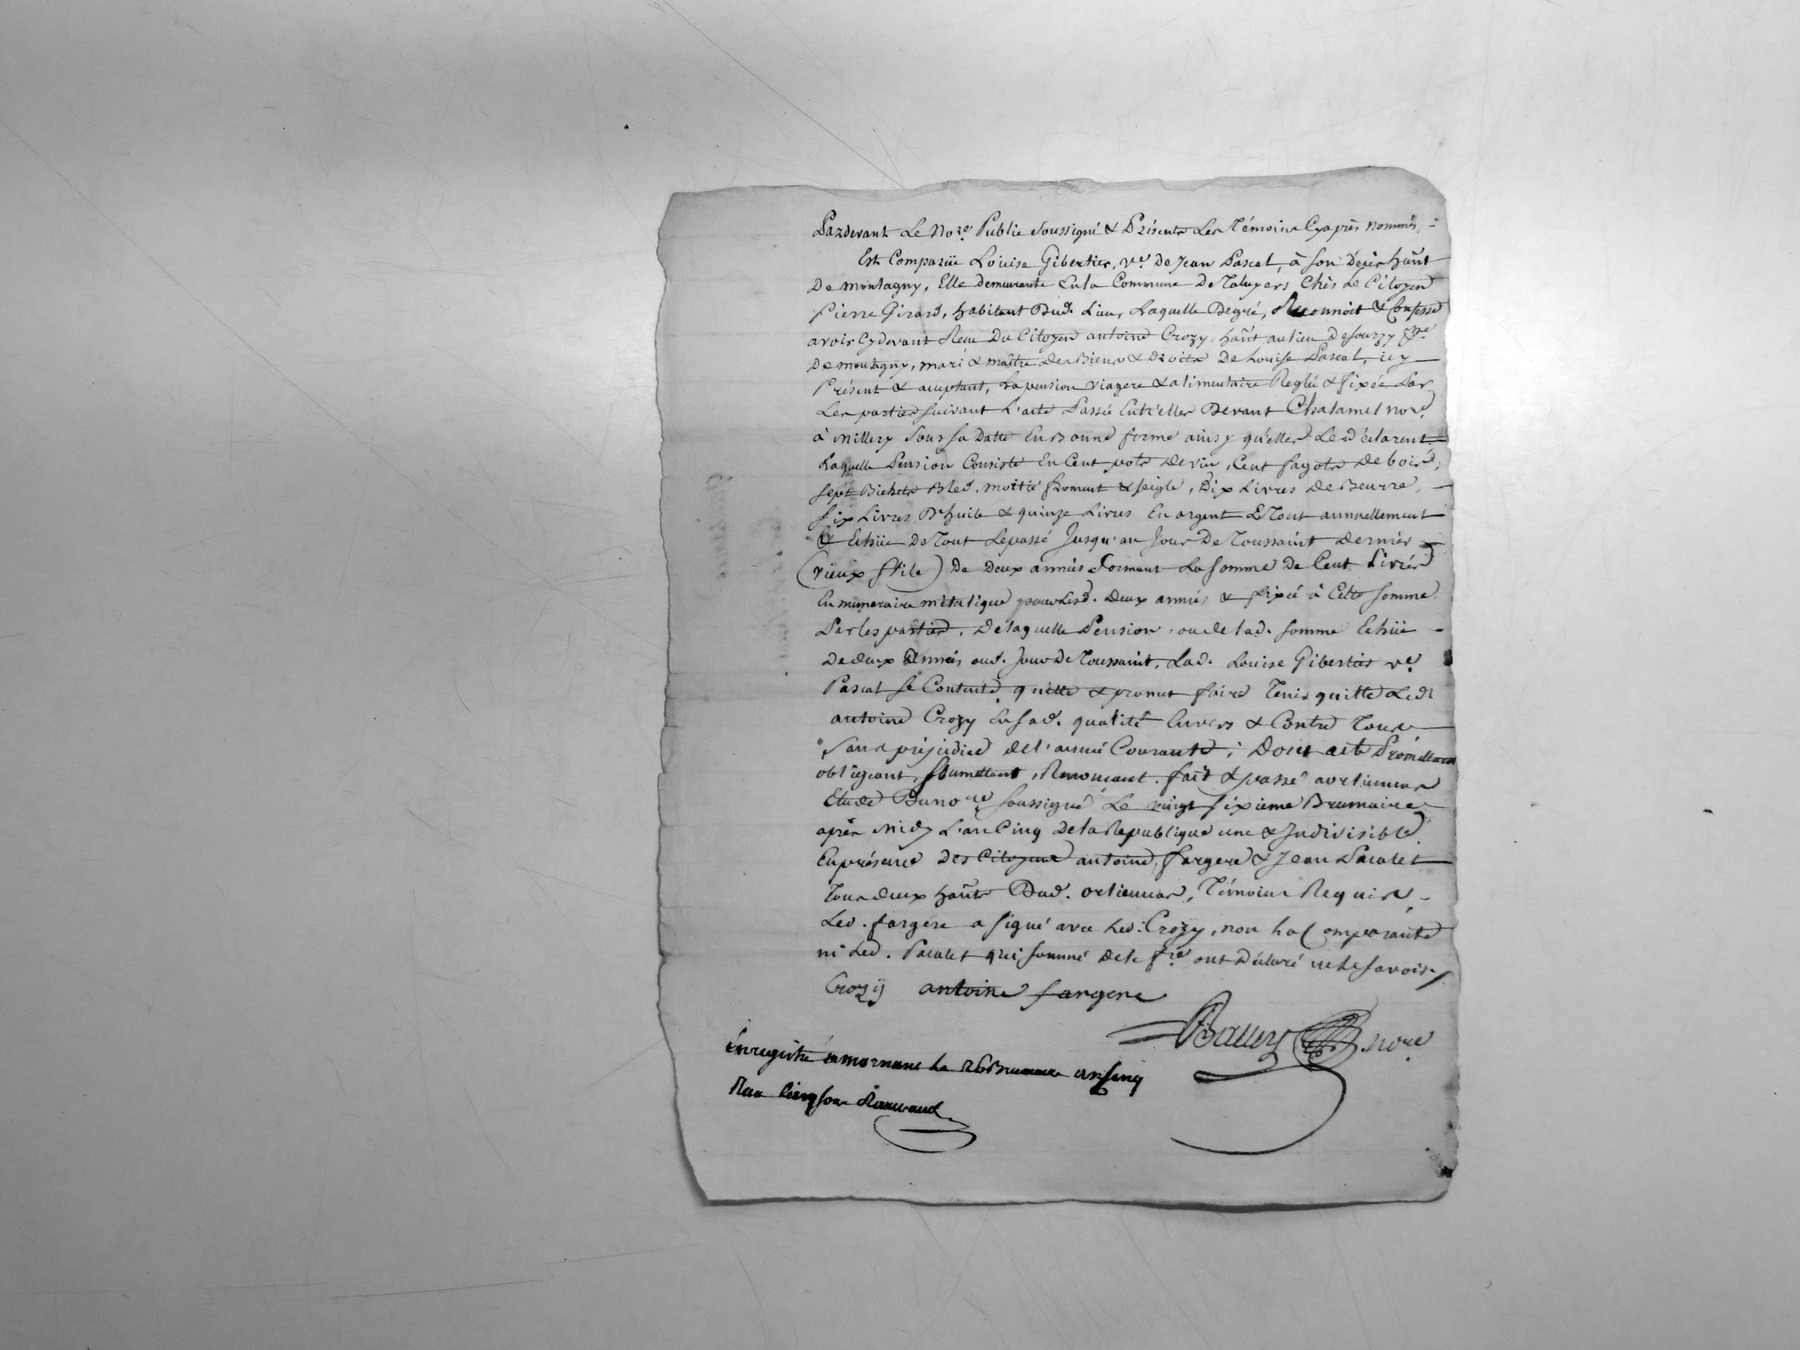 Pardevant Le no.re Public soussigné & Présents Les Témoins Cyaprès nommés, -
Est Comparüe Louise Gibertier, v.e de Jean Pascal, à son décès hãnt
De montagny, Elle demeurante En la Commune De Taluyers Chés Le Citoyen
Pierre Girard, habitant Dud. Lieu, Laquelle De gré, Reconnoit & Confesse
avoir Cydevant Reçu Du Citoyen antoine Crozy, hãnt au lieu De Sourzy p.sse
De montagny, mari & maître des Biens & Droits De Louise Pascal, icy
Présent & acceptant, La pension viagere & alimentaire Reglée & fixée Par
Les parties suivant L'acte Passé Entr'elles Devant Chatamel no.re
à Millery Sous sa Datte En Bonne forme ainsy qu'elles Le déclarent.
Laquelle Pension Consiste En Cent pots de vin, Cent fagots de bois,
sept Bichets Bled, moitié froment & seigle, Dix Livres de Beurre, -
six Livres D'huile & quinze Livres En argent Le Tout annuellement
& Echüe De Tout Le passé Jusqu'au Jour De Toussaint dernier
(vieux stile) De Deux années formant La somme De Cent Livres
En numeraire métalique pour Lesd. Deux années & fixée à Cette somme
Par les parties, De laquelle Pension, ou de lad. somme Echüe -
de deux années aud. Jour de Toussaint, Lad. Louise Gibertier v.e
Pascal se Contente, quitte & promet faire Tenir quitte Led.
antoine Crozy En sad. qualité Envers & Contre Tous
sans préjudice de l'année Courante; Dont acte Promettant
obligeant, soumettant, Renonçant. fait & passé a orlienas
Etude Du no.re soussigné Le vingt sixieme Brumaire
après Midy L'an Cinq De la Republique une & Indivisible
En présence des Citoyens antoine fargere & Jean Pacalet
Tous deux hãnts Dud. orlienas, Témoins Requis, -
Led. fargere a signé avec Led. Crozy, non la Comparante
ni Led. Pacalet qui sommé de le f.re ont Déclaré ne le savoir
Crozy antoine fargere
no.re
Enregistré à mornant le 26 Brumaire an Cinq
Reçu